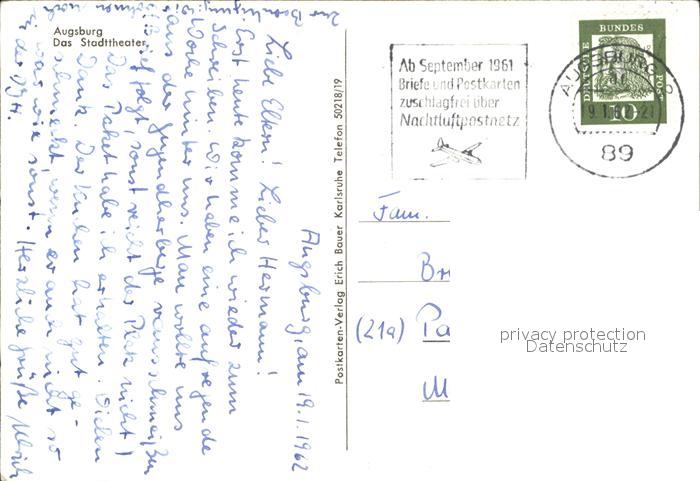 Augsburg
Das Stadttheater
Augsburg, am 19.1.1962
Liebe Eltern! Lieber Hermann!
Erst heute komme ich wieder zum
Schreiben. Wir haben eine aufregende
Woche hinter uns. Man wollte uns
aus der Jugendherberge rausschmeißen
(Brief folgt, sonst reicht der Platz nicht)
Das Paket habe ich erhalten. Vielen
Dank. Der Kuchen hat gut ge-
schmeckt, wenn er auch nicht so
war wie sonst. Herzliche Grüße Ulrich
Zur
Postkarten-Verlag Erich Bauer Karlsruhe Telefon 50218/19
Ab September 1961
Briefe und Postkarten
zuschlagfrei über
Nachtluftpostnetz
DEUTSCHE
BUNDES
POST
10
AUGSBURG 2
89
Fam.
Br
(21a) Pa
M
privacy protection
Datenschutz